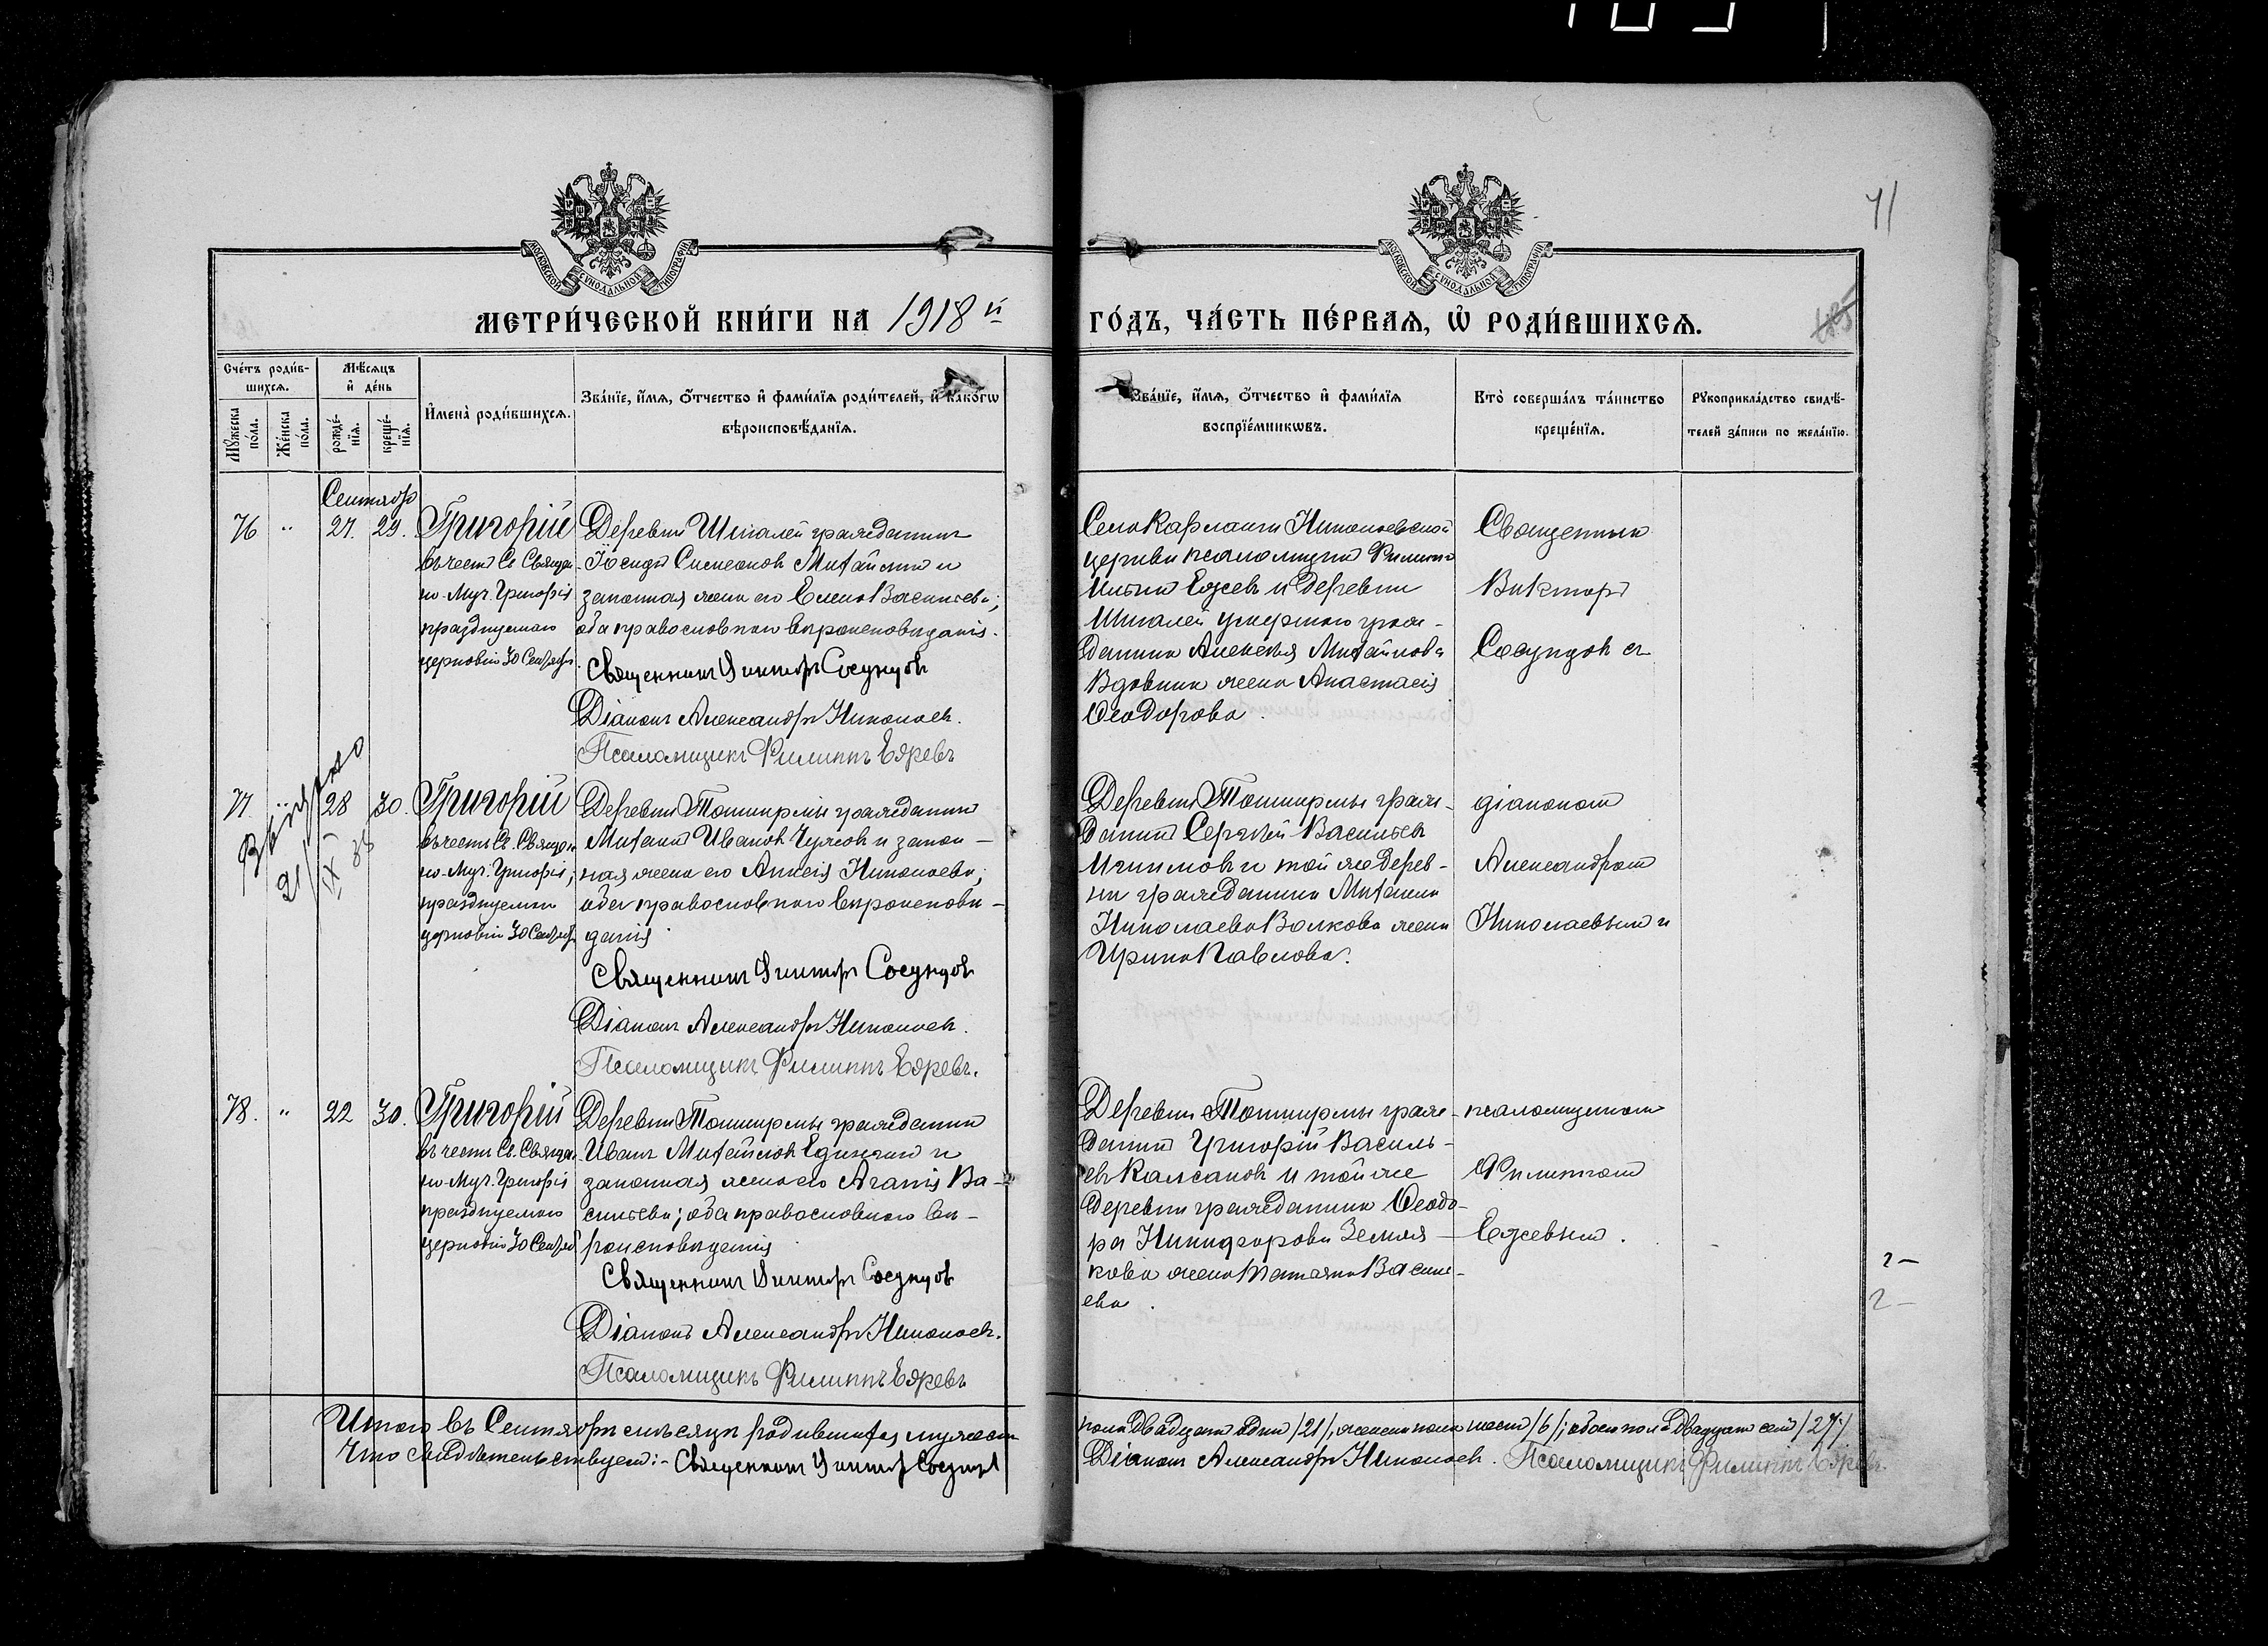 41
МЕТРИ́ЧЕСКОЙ КНИ́ГИ НА 1918 й
ГО́ДЪ, ЧА́СТЬ ПЕ́РВАЯ, Ѡ҆ РОДИ́ВШИХСЯ.
Сче́тъ роди́в-
шихся.
Мѣ́сяцъ
и҆ де́нь
Мꙋ́жеска
по́ла.
Же́нска
по́ла.
рожде́-
нїя.
креще́-
нїя.
И҆мена̀ роди́вшихся.
Зва́нїе, и҆́мя, ѻ҆́тчество и҆ фами́лїя роди́телей, и҆ како́гѡ
вѣроисповѣ́данїя.
Зва́нїе, и҆́мя, ѻ҆́тчество и҆ фами́лїя
воспрїе́мникѡвъ.
Кто̀ соверша́лъ та́инство
креще́нїя.
Рꙋкоприкла́дство свидѣ́-
телей за́писи по жела́нїю.
Сентябр
76 " 27. 29. Григорій
въ честь Св. Священ
но-Муч. Григорія
празднуемаго
церковію 30 Сентября.
Деревни Шигалей гражданинъ
Іосифъ Симеоновъ Михайловъ и
законная жена его Елена Васильева;
оба православнаго вѣроисповѣданія.
Священникъ Викторъ Сосунцовъ
Діаконъ Александръ Николаевъ.
Псаломщикъ Филиппъ Ефревъ
Село Карлангы Николаевской
церкви псаломщикъ Филиппъ
Ильинъ и деревни
Шигалей умершаго граж-
данина Алексѣя Михайлова
Вдовица жена Анастасія
Ѳеодорова.
Священникъ
Викторъ
Сосунцовъ съ
77. 28 30. Григорій
въ честь Св. Священ
но-Муч. Григорія;
празднуемаго
церковію 30 Сентября
21/IX 88
Деревни гражданинъ
Михаилъ Ивановъ и закон-
ная жена его Анисія Николаева;
оба православнаго вѣроисповѣ-
данія.
Священникъ Викторъ Сосунцовъ
Діаконъ Александръ Николаевъ.
Псаломщикъ Филиппъ Ефревъ.
Деревни граж-
данинъ Сергѣй Васильевъ
и той же дерев-
ни гражданина Михаила
Николаева Волкова жена
Ирина Павлова.
діакономъ
Александромъ
Николаевымъ и
78. " 22 30. Григорій
въ честь Св. Священ
но-Муч. Григорія
празднуемаго
церковію 30 Сентяб
Деревни гражданинъ
Иванъ Михайловъ и
законная жена его Агапія Ва-
сильева; оба православнаго вѣ-
роисповѣданія
Священникъ Викторъ Сосунцовъ
Діаконъ Александръ Николаевъ.
Псаломщикъ Филиппъ Ефревъ
Деревни граж-
данинъ Григорій Василь-
евъ и той же
деревни гражданина Ѳеодо-
ра Никифорова Земля-
кова жена Татьяна Василь-
ева.
псаломщикомъ
Филиппомъ
2-
2-
Итого въ Сентябрѣ мѣсяцѣ родившихся мужеска
пола двадцать одинъ /21/, женска пола шесть /6/; обоего пола двадцать семь /27/.
Что свидѣтельствуемъ:- Священникъ Викторъ Сосунцовъ
Діаконъ Александръ Николаевъ. Псаломщикъ Филиппъ Ефревъ.